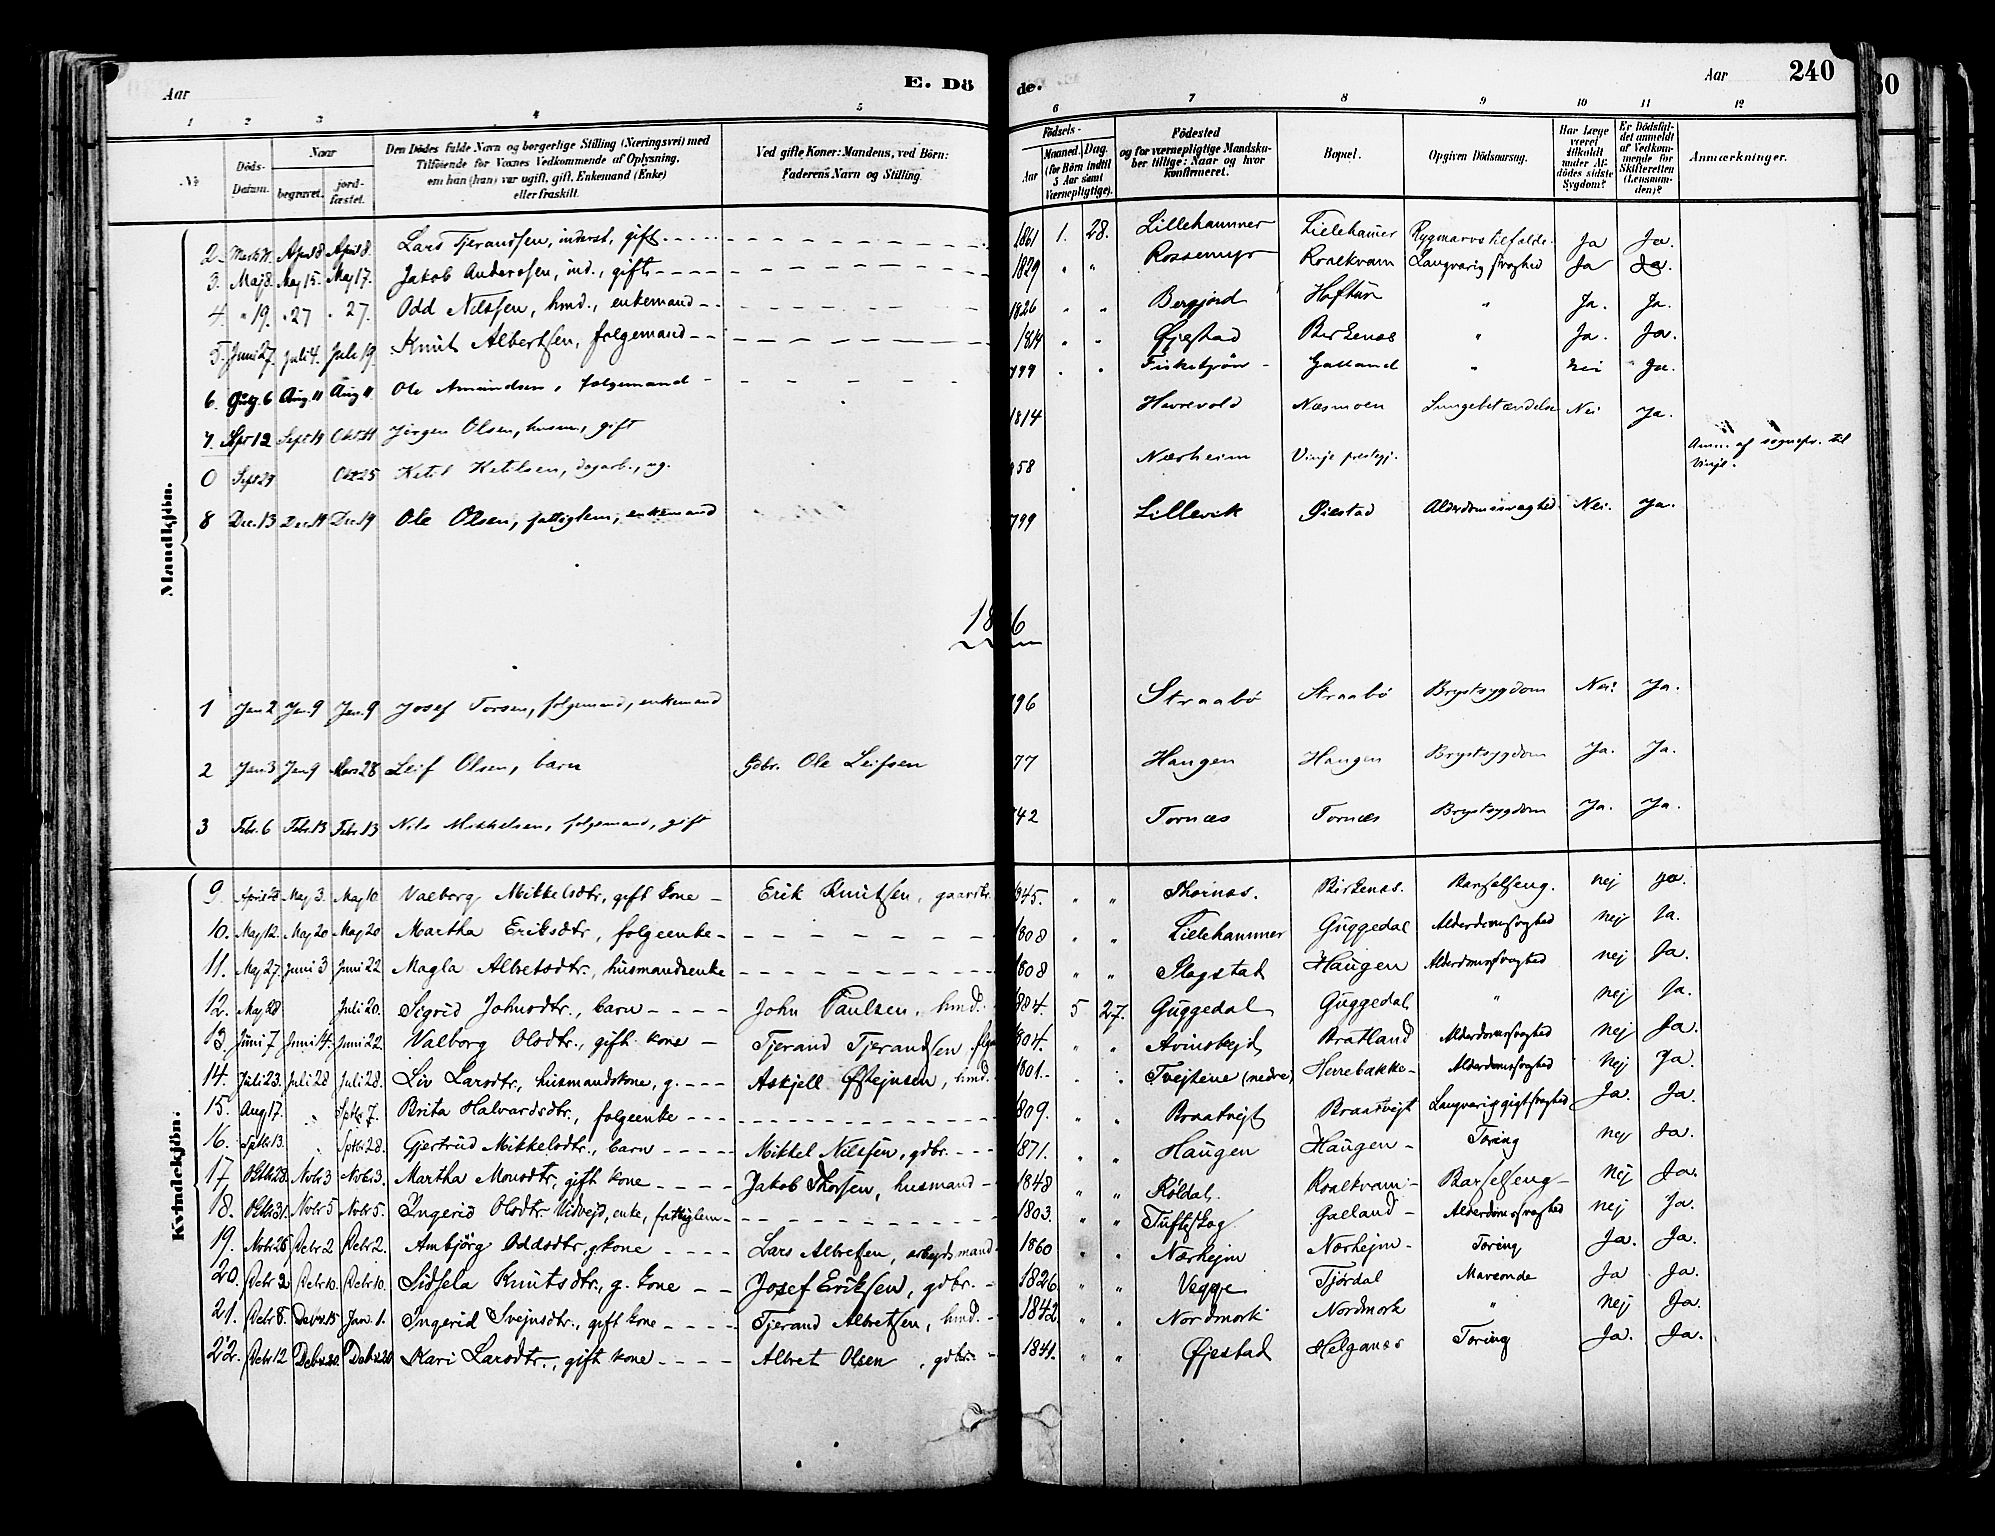 Aar
E. Dö
de.
Aar
240
1 2 3 4 5 6 7 8 9 10 11 12
No
Döds-Datum.
Naar
begravet.
jord-fæstet.
Den Dödes fulde Navn og borgerlige Stilling (Næringsvei) med
Tilföiende for Voxnes Vedkommende af Oplysning,
om han (hun) var ugift, gift, Enkemand (Enke)
eller fraskilt.
Ved gifte Koner: Mandens, ved Börn:
Faderens Navn og Stilling
Födsels-
Aar
Maaned. Dag.
(for Börn indtil
5 Aar samt
Værnepligtige).
Födested
og for værnepligtige Mandska-
ber tillige: Naar og hvor
konfirmeret.
Bopæl.
Opgiven Dödsaarsag.
Har Læge
været
tilkaldt
under Af-
dödes sidste
Sygdom?
Er Dödsfal-
det anmeldt
af Vedkom-
mende for
Skifteretten
(Lensman-
den)?
Anmærkninger.
Mandkjön.
2. April 8 April 8. Lars Tjerandsen, inderst, gift 1861 1. 28. Lillehammer Lillehamer Rygmarvstilfælde Ja Ja.
3. Maj 8. Maj 15. Maj 17. Jakob Andersen, ind., gift 1829 " " Rossemyr Roalkvam Langvarig svaghed Ja Ja.
4. " 19. " 27 " 27. Odd Nilssen, hmd., enkemand 1826 " " Bergjord Haftun " Ja. Ja.
5. Juni 27. Juli 4. Juli 19. Knut Albertsen, folgemand 1814 " " Øjestad Birkenæs " Ja. Ja.
6. Aug. 11 Aug 11 Ole Amundsen, folgemand 799 " " Fisketjøn Galland " nei Ja.
7. Spt 12 Sept 19 Jørgen Olsen, husm, gift 1814 Havrevold Næsmoen Lungebetændelse Nei Ja.
0 Sept 29 Okt 25 Ketil Ketilsen, dagarb., ug. 858 Nærheim Vinje prestegj. Anm. af sognepr. til
Vinje.
8 Dec. 13 Dec. 19 Dec. 19 Ole Olsen, fattiglem, enkemand 799 Lillevik Øiestad Alderdomssvaghed Nei. Ja.
18 6
1 Jan 2 Jan 9 Jan. 9 Josef Torsen, folgemand, enkemand 796 Straabø Straabø Brystsygdom Nei Ja.
2 Jan 3 Jan 9 Mars 28 Leif Olsen, barn Gdbr. Ole Leifsen 77 Haugen Haugen Brystsygdom Ja. Ja.
3 Febr. 6 Febr 13 Febr 13 Nils Mikkelsen, folgemand, gift 842 Tornæs Tornæs Brystsygdom Ja. Ja.
Kvindekjön.
9. Maj 3. Maj 10. Valborg Mikkelsdtr, gift kone Erik Knutsen, gaardbr. 845. " " Thornæs. Birkenæs. Barselseng. nej Ja.
10. Maj 12. Maj 20 Maj 20 Martha Eriksdtr, folgeenke 1808 " " Lillehammer Guggedal Alderdomssvaghed nej Ja.
11. Maj 27. Juni 3 Juni 22 Magla Albretsdtr, husmandsenke 1808 " " Plogstad Haugen Alderdomssvaghed nej Ja.
12. Maj 28 Juli 20. Sigrid Johnsdtr., barn John Paulsen, hmd. 884. 5 27. Guggedal Guggedal " nej Ja.
13. Juni 7 Juni 14. Juni 22. Valborg Olsdtr., gift kone Tjerand Tjerandsen 804. " " Avinskejd Bratland Alderdomssvaghed nej Ja.
14. Juli 23. Juli 28 Juli 28. Liv Larsdtr, husmandskone, g. Askjell Østejnsen, hmd. 1801. " " Tvejtene (nedre) Herrebakke Alderdomssvaghed nej Ja.
15. Aug 17. " Sptbr 7. Brita Halvardsdtr., folgeenke 1809. " " Braatvejt Braatvejt Langvarig gigtsvaghed Ja. Ja.
16. Sptbr 13. " Sptbr 28. Gjertrud Mikkelsdtr, barn Mikkel Nilssen, gdbr. 1871. " " Haugen Haugen Tæring nej Ja.
17. Oktbr 28. Novbr 3 Novbr 3. Martha Monsdtr, gift kone Jakob Thorsen, husmand 1848 " " Røldal. Roalkvam Barselseng nej Ja.
18. Oktbr 31. Novbr 5 Novbr 5. Ingerid Olsdtr. Vidvejd, enke, fattiglem 1803. " " Tuftskog Galland Alderdomssvaghed nej Ja.
19. Novbr 26 Debr 2 Debr 2. Ambjörg Oddsdtr, g kone Lars Albretsen, arbejdsmand 1860 " " Nærhejm Nærhejm Tæring Ja. Ja.
20. Debr 2 Debr 10. Debr 10. Sidsela Knutsdtr, g. kone Josef Eriksen, gdbr. 1826. " " Vegge Tjördal Maveonde Ja Ja.
21. Debr 8. Debr 15 Jan. 1. Ingerid Svejnsdtr., gift kone Tjerand Albretsen, hmd. 1842 " " Nordmork Nordmork " nej Ja.
22. Debr 12 Debr 20. Debr 20 Kari Larsdtr., gift kone Albret Olsen, gdbr. 1841. " " Øjestad Helganes Tæring Ja. Ja.